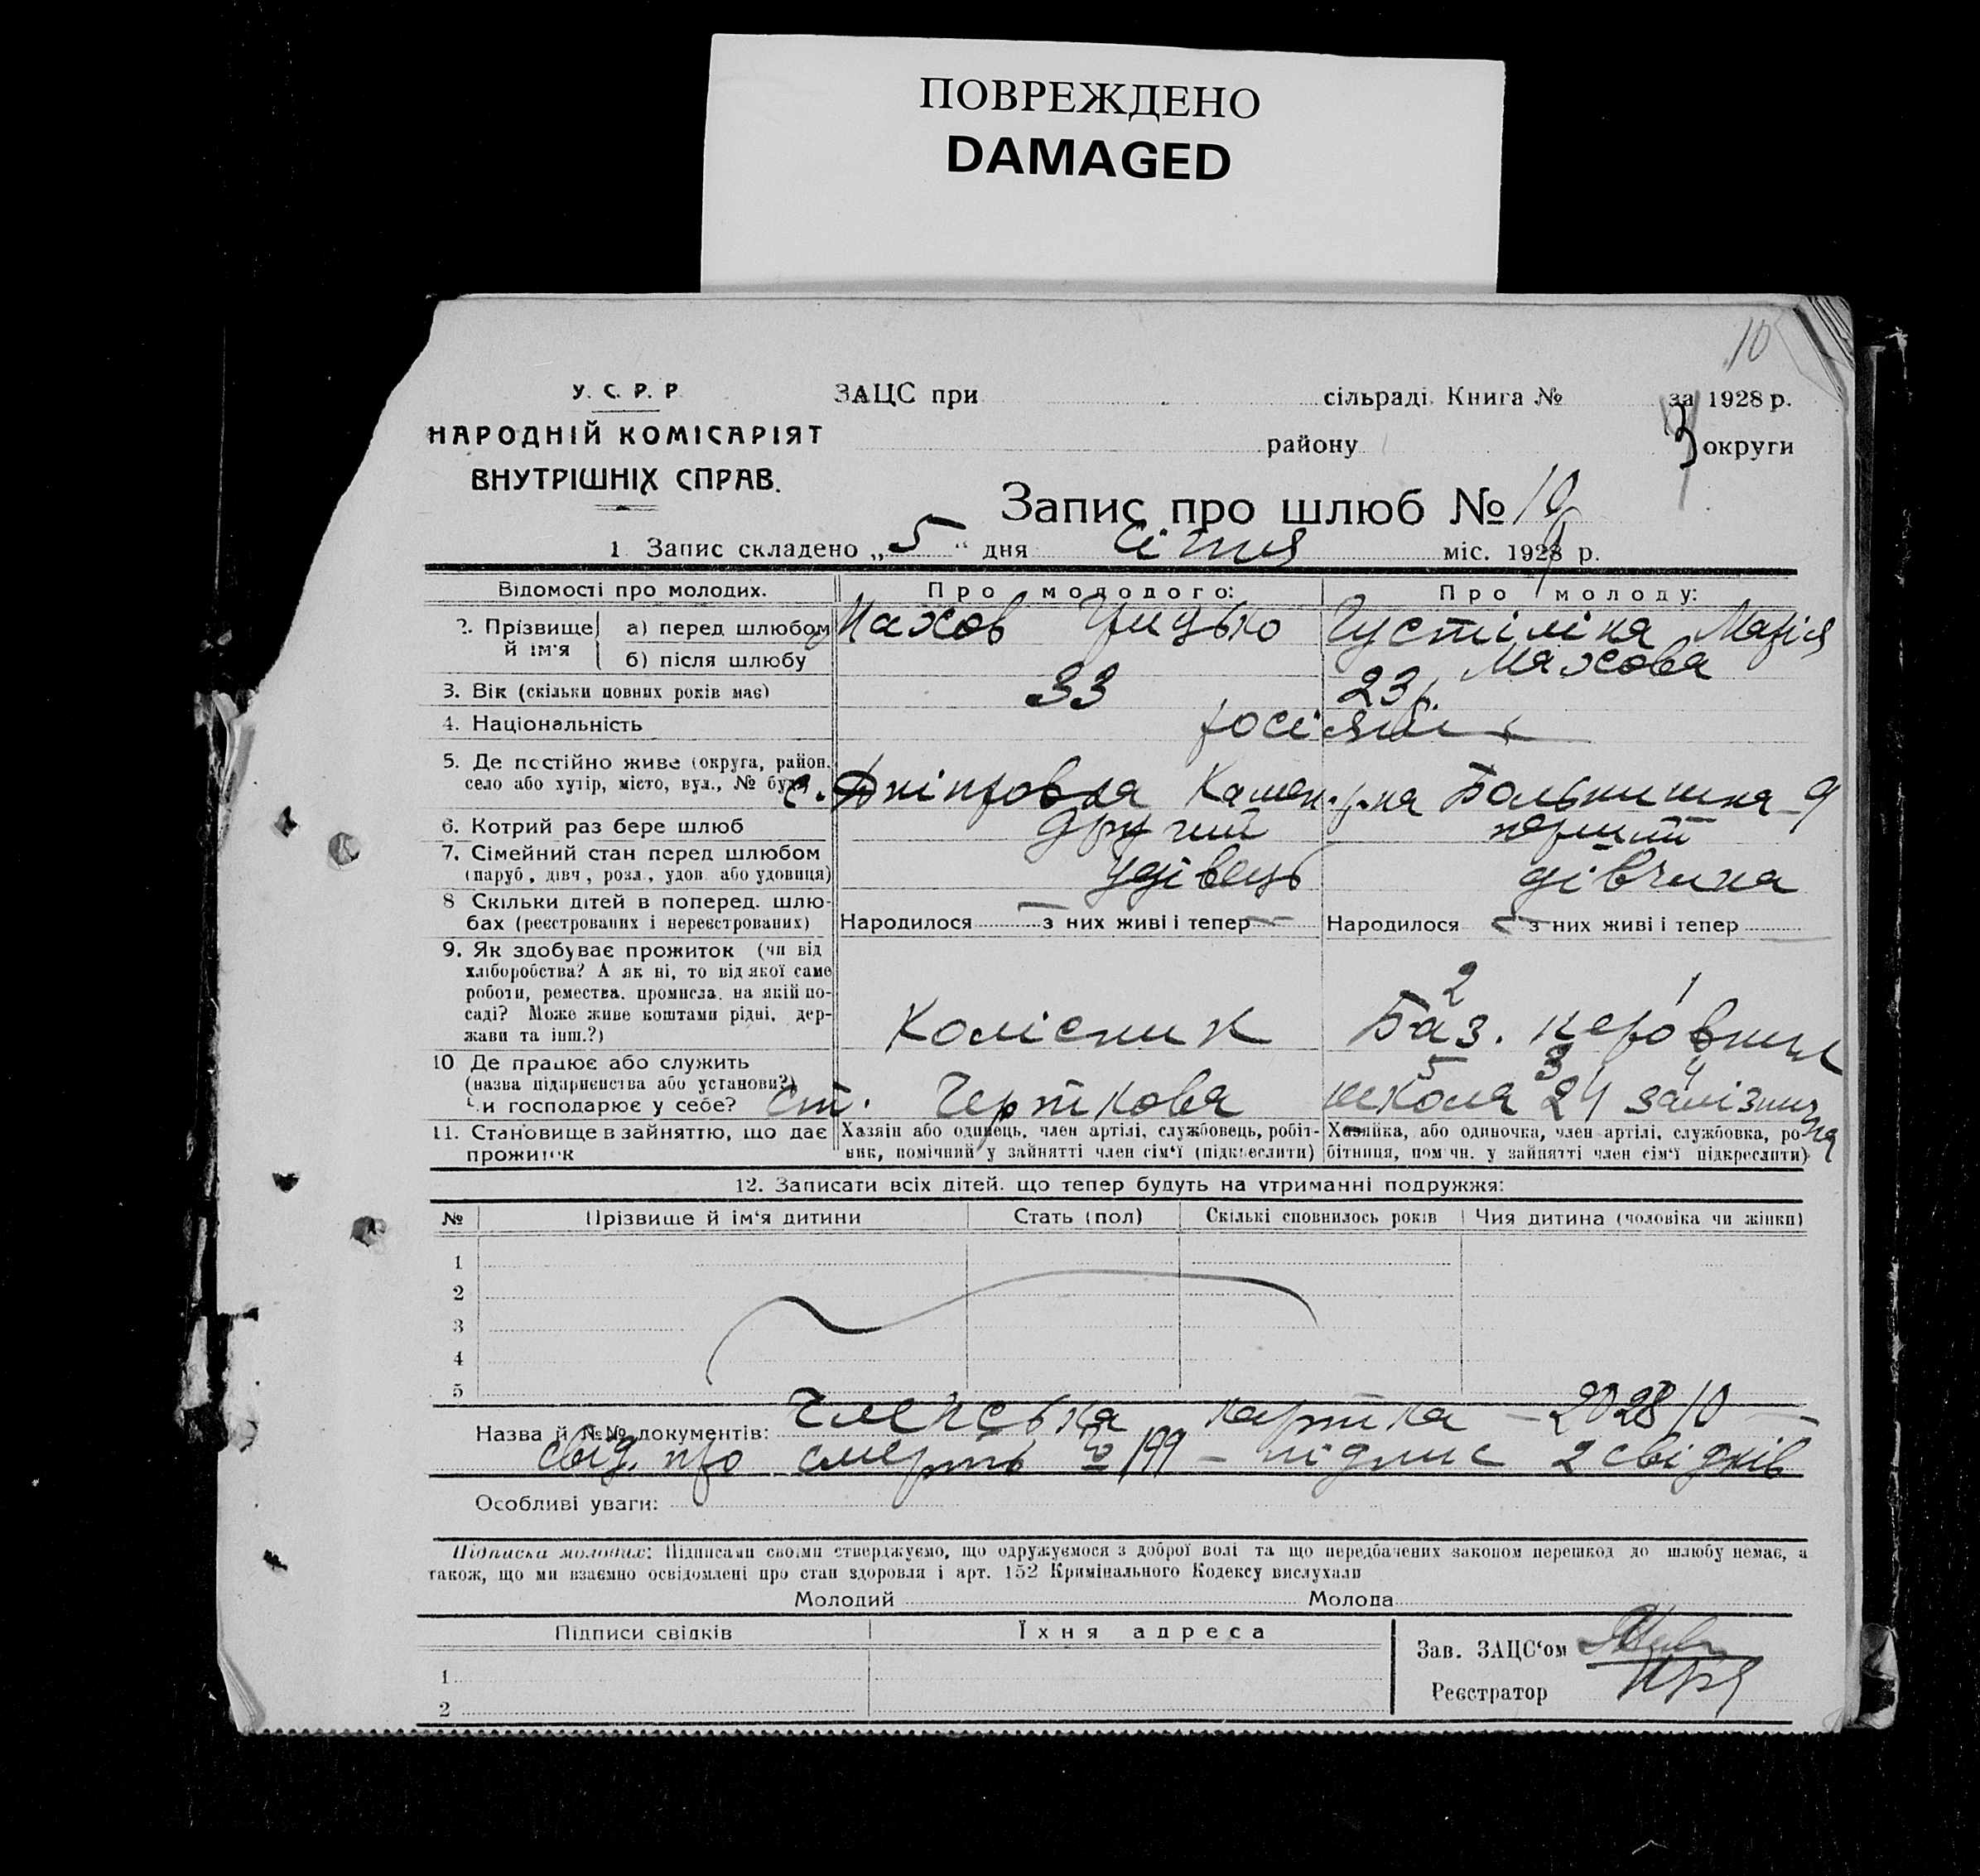 ПОВРЕЖДЕНО
DAMAGED
10
У. С. Р. Р
НАРОДНІЙ КОМІСАРІЯТ
ВНУТРІШНІХ СПРАВ.
ЗАЦС при сільраді Книга № за 1928 р.
району 3 округи
Запис про шлюб № 10
1 Запис складено „5“ дня січня міс. 1929 р.
Відомості про молодих. Про молодого: Про молоду:
2. Прізвище й ім'я а) перед шлюбом Махов Грицько Густіліна Марія
б) після шлюбу Махова
3. Вік (скільки повних років має) 33 23 р.
4. Національність росіяни
5. Де постійно живе (округа, район, село або хутір, місто, вул., № буд.) с. Дніпровка Камен. р-на Больнишна 9
6. Котрий раз бере шлюб другий перший
7. Сімейний стан перед шлюбом (паруб., дівч., розл., удов. або удовиця) удівець дівчина
8 Скільки дітей в поперед. шлюбах (реєстрованих і нереєстрованих) Народилося — з них живі і тепер — Народилося — з них живі і тепер —
9. Як здобуває прожиток (чи від хліборобства? А як ні, то від якої саме роботи, ремества, промисла, на якій посаді? Може живе коштами рідні, держави та інш.?) Колісник Баз. керівник
10 Де працює або служить (назва підприємства або установи?) Чи господарює у себе? ст. Черткова школа 24 залізнична
11. Становище в зайняттю, що дає прожиток Хазяїн або одинець, член артілі, службовець, робітник, помічний у зайнятті член сім'ї (підкреслити) Хазяйка, або одиночка, член артілі, службовка, робітниця, помічн. у зайнятті член сім'ї підкреслити)
12. Записати всіх дітей, що тепер будуть на утриманні подружжя:
№ Прізвище й ім'я дитини Стать (пол) Скількі сповнилось років Чия дитина (чоловіка чи жінки)
1
2
3
4
5
Назва й №№ документів: Членська картка – 202810 –
свід. про смерть 199 – підпис 2 свідків
Особливі уваги:
Підписка молодих: Підписами своїми стверджуємо, що одружуємося з доброї волі та що передбачених законом перешкод до шлюбу немає, а
також, що ми взаємно освідомлені про стан здоровля і арт. 152 Кримінального Кодексу вислухали
Молодий Молода
Підписи свідків Їхня адреса
Зав. ЗАЦС'ом
Реєстратор
1
2